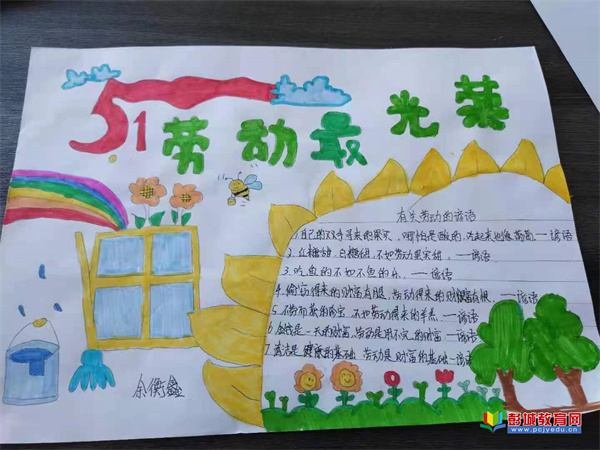 51 劳动最光荣
有关劳动的谚语
1.自己的双手寻来的果实,哪怕是酸的,吃起来也像葡萄——谚语
2.红糖甜,白糖甜,不如劳动果实甜。——谚语
3.吃鱼的不如不鱼的乐。——谚语
4.偷窃得来的财富有腿,劳动得来的财富有根。——谚语
5.不劳而获的珍宝,不如劳动得来的羊羔——谚语
6.金钱是一天的财富,劳动是用不完的财富——谚语
7.清洁是健康的基础 劳动是财富的基础——谚语
余衡鑫
彭城教育网
www.pcjyedu.cn